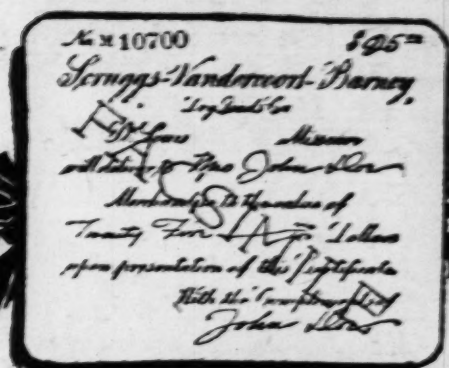 No. 10700 $25.00
Scruggs-Vandervoort-Barney
St. Louis Missouri
will deliver to Mrs John Doe
Merchandise to the value of
Twenty Five Dollars
upon presentation of this Certificate
With the Compliments of
John Doe
FACSIMILE